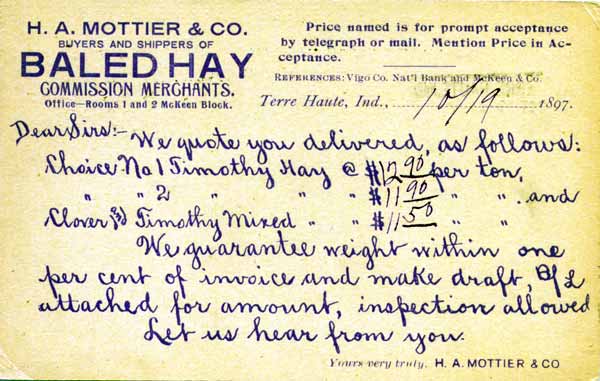 H. A. MOTTIER & CO.
BUYERS AND SHIPPERS OF
BALED HAY
COMMISSION MERCHANTS.
Office—Rooms 1 and 2 McKeen Block.
Price named is for prompt acceptance
by telegraph or mail. Mention Price in Ac-
ceptance.
REFERENCES: Vigo Co. Nat'l Bank and McKeen & Co.
Terre Haute, Ind., 10/19 1897.
Dear Sirs:- We quote you delivered, as follows:
Choice No 1 Timothy Hay @ $12 90 per ton,
" " 2 " " " $11 90 " " and
Clover & Timothy Mixed " " $11 50 " "
We guarantee weight within one
per cent of invoice and make draft, B/L
attached for amount, inspection allowed
Let us hear from you.
Yours very truly, H. A. MOTTIER & CO